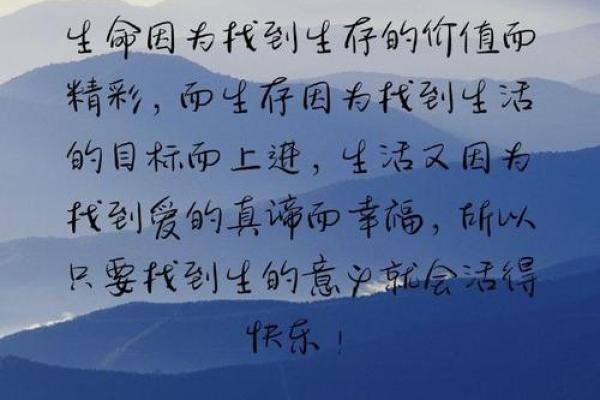 生命因为找到生存的价值而
精彩，而生存因为找到生活
的目标而上进，生活又因为
找到爱的真谛而幸福，所以
只要找到生的意义就会活得
快乐！